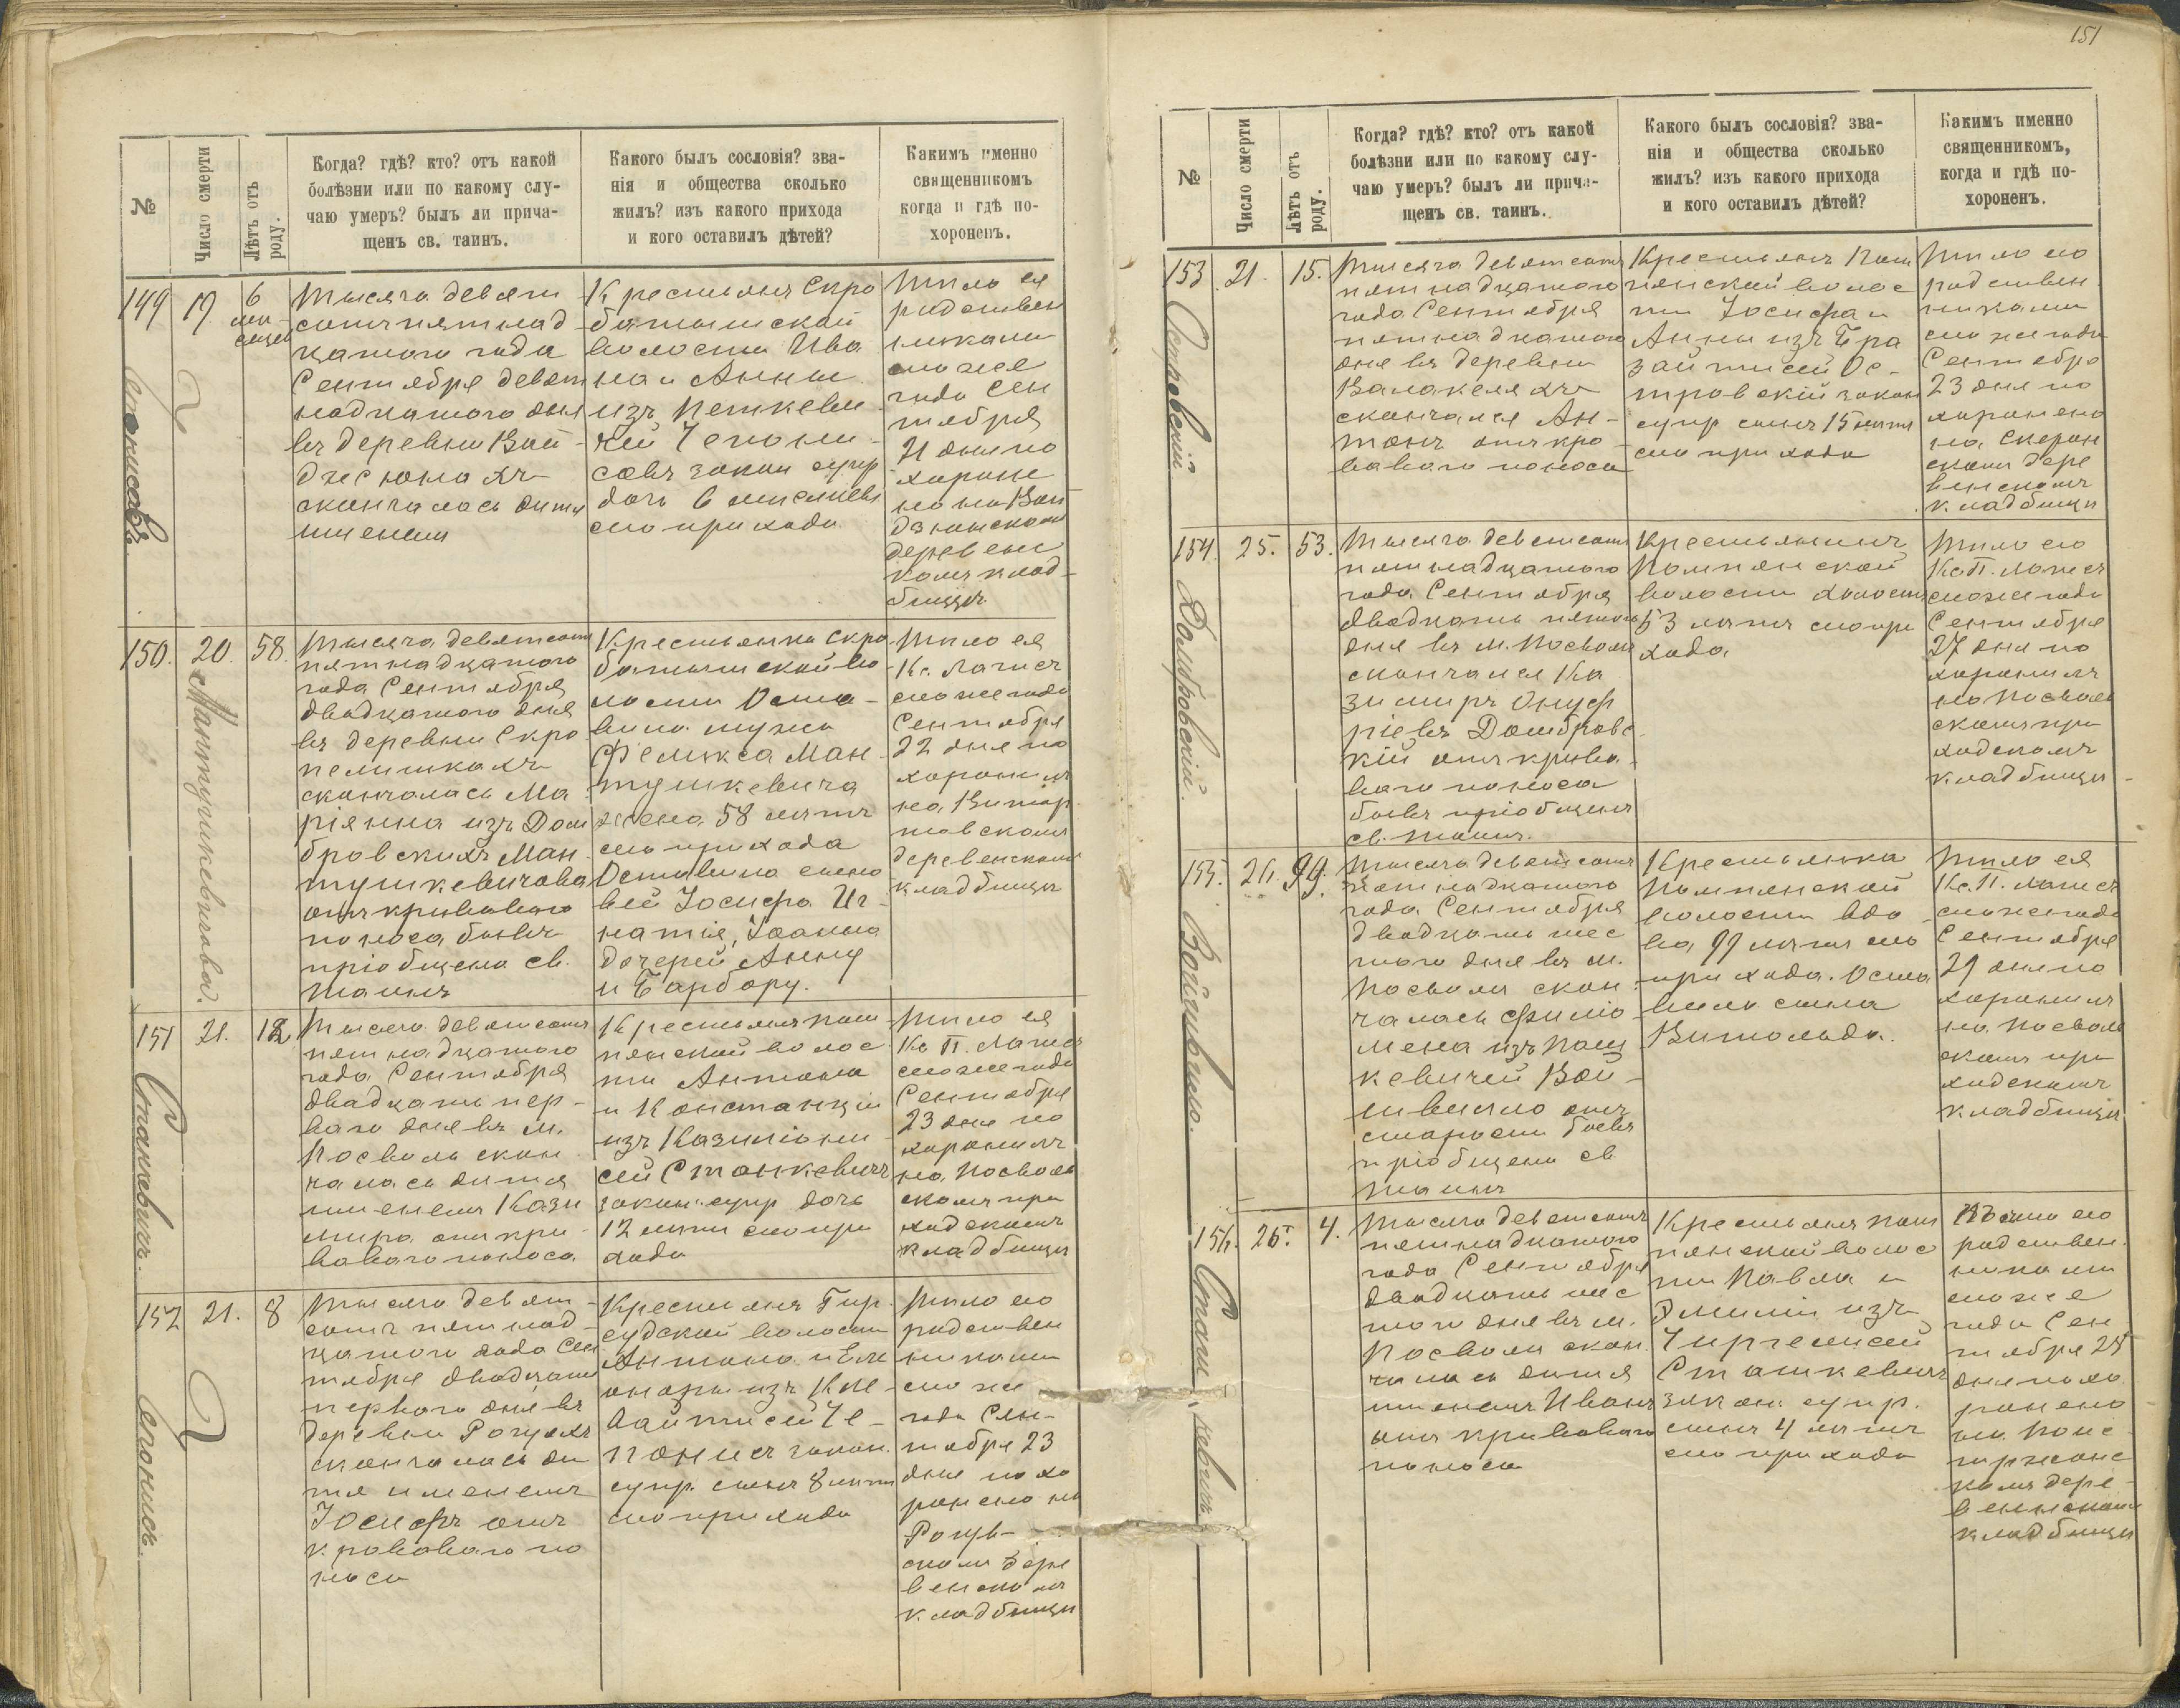 151
№
Число смерти
Лѣтъ отъ роду.
Когда? гдѣ? кто? отъ какой
болѣзни или по какому слу-
чаю умеръ? былъ ли прича-
щенъ св. таинъ.
Какого былъ сословія? зва-
нія и общества сколько
жилъ? изъ какого прихода
и кого оставилъ дѣтей?
Какимъ именно
священникомъ
когда и гдѣ по-
хороненъ.
149
19
6
мѣ-
сяцев
Тысяча девять
сотъ пятнад
цатого года
Сентября девят
надцатого дня
въ деревни Вай
дзюнахъ
скончалась дитя
именем
Крестьянъ Скро
батышской
волости Ива
на и Анны
изъ Петкеви
чей
закон супр
дочь 6 мѣсяцевъ
сего прихода
Тѣло ея
родствен
никами
сего же
года Сен
тября
21 дня по
хороне
но на
деревенс
комъ клад-
бищѣ
150.
20.
58.
Мантушкевичова.
Тысяча девятсотъ
пятнадцатого
года Сентября
двадцатого дня
въ деревни Скро
пелишкахъ
скончалась Ма
ріянна изъ Дом
бровскихъ Ман
тушкевичова
отъ кривавого
поноса бывъ
пріобщена св.
таинъ
Крестьянка Скро
батышской во
лости Оста-
вила мужа
Феликса Ман
тушкевича
жена 58 лѣтъ
сего прихода
Оставила сыно
вей Іосифа Иг
натія, Іоанна
дочерей Анну
и Барбору.
Тѣло ея
Кс. Лапись
сего же года
Сентября
22 дня по
хоронилъ
на
деревенскомъ
кладбищѣ
151
21.
12
Станкевичъ.
Тысяча девятсотъ
пятнадцатого
года Сентября
двадцать пер-
ваго дня въ м.
Посволь скон
чалась дитя
именемъ Кази
мира отъ кри
ваваго поноса.
Крестьянъ Пом
пянской волос
ти Антона
и Констанціи
изъ
сей Станкевичъ
закон. супр дочь
12 лѣтъ сего при
хода
Тѣло ея
Кс П. Лапись
сего же года
Сентября
23 дня по
хоронилъ
на Посволь
скомъ при
ходскомъ
кладбищѣ
152
21.
8
Тысяча девят-
сотъ пятнад-
цатого года Сен
тября двадцать
перваго дня въ
деревни
скончалась ди
тя именемъ
Іосифъ отъ
кроваваго по
носа
Крестьянъ Гир
судской волости
Антона и Еле
оноры изъ
закон.
супр. сынъ 8 лѣтъ
сего прихода
Тѣло его
родствен
никами
сего же
года Сен-
тября 23
дня похо
ронено на
скомъ дере
венскомъ
кладбищѣ
№
Число смерти
Лѣтъ отъ роду.
Когда? гдѣ? кто? отъ какой
болѣзни или по какому слу-
чаю умеръ? былъ ли прича-
щенъ св. таинъ.
Какого былъ сословія? зва-
нія и общества сколько
жилъ? изъ какого прихода
и кого оставилъ дѣтей?
Какимъ именно
священникомъ,
когда и гдѣ по-
хороненъ.
153
21.
15.
Островскій
Тысяча девятсотъ
пятнадцатого
года Сентября
пятнадцатого
дня въ деревни
Валакеляхъ
скончался Ан-
тонъ отъ кро-
ваваго поноса
Крестьянъ Пом
пянской волос
ти Іосифа и
Анны изъ Бра
зайтисей Ос-
тровскій закон
супр сынъ 15 лѣтъ
сего прихода
Тѣло его
родствен
никами
сего же года
Сентября
23 дня по
хоронено
на
скомъ дере
венскомъ
кладбищѣ
154.
25.
53.
Домбровскій.
Тысяча девятсотъ
пятнадцатого
года Сентября
двадцать пятого
дня въ м. Посволь
скончался Ка
зимиръ Онуф
ріевъ Домбровс
кій отъ крива-
ваго поноса
бывъ пріобщенъ
св. таинъ.
Крестьянинъ
Помпянской
волости холостъ
53 лѣтъ сего при
хода
Тѣло его
Кс П. Лапись
сего же года
Сентября
27 дня по
хоронилъ
на Посволь
скомъ при
ходскомъ
кладбищѣ
155.
26.
99.
Тысяча девятсотъ
пятнадцатого
года Сентября
двадцать шес
того дня въ м.
Посволь скон
чалась Фило
мена изъ
отъ
старости бывъ
пріобщена св
таинъ
Крестьянка
Помпянской
волости вдо
ва 99 лѣтъ сего
прихода. Оста
вила сына
Витольда.
Тѣло ея
Кс. П. Лапись
сего же года
Сентября
29 дня по
хоронилъ
на Посволь
скомъ при
ходскомъ
кладбищѣ
156.
26.
4.
Тысяча девятсотъ
пятнадцатого
года Сентября
двадцать шес
того дня въ м.
Посволи скон
чалась дитя
именемъ Иванъ
отъ кривавого
поноса
Крестьянъ Пом
пянской волос
ти Павла и
Эмиліи изъ
Сташкевичъ
закон. супр.
сынъ 4 лѣтъ
сего прихода
Тѣло его
родствен
никами
сего же
года Сен
тября 28
дня похо
ронено
на
комъ дере-
венскомъ
кладбищѣ